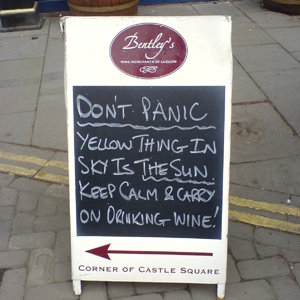 Bentley's
WINE MERCHANTS OF LUDLOW
DON'T PANIC
YELLOW THING IN
SKY IS THE SUN.
KEEP CALM & CARRY
ON DRINKING WINE!
CORNER OF CASTLE SQUARE